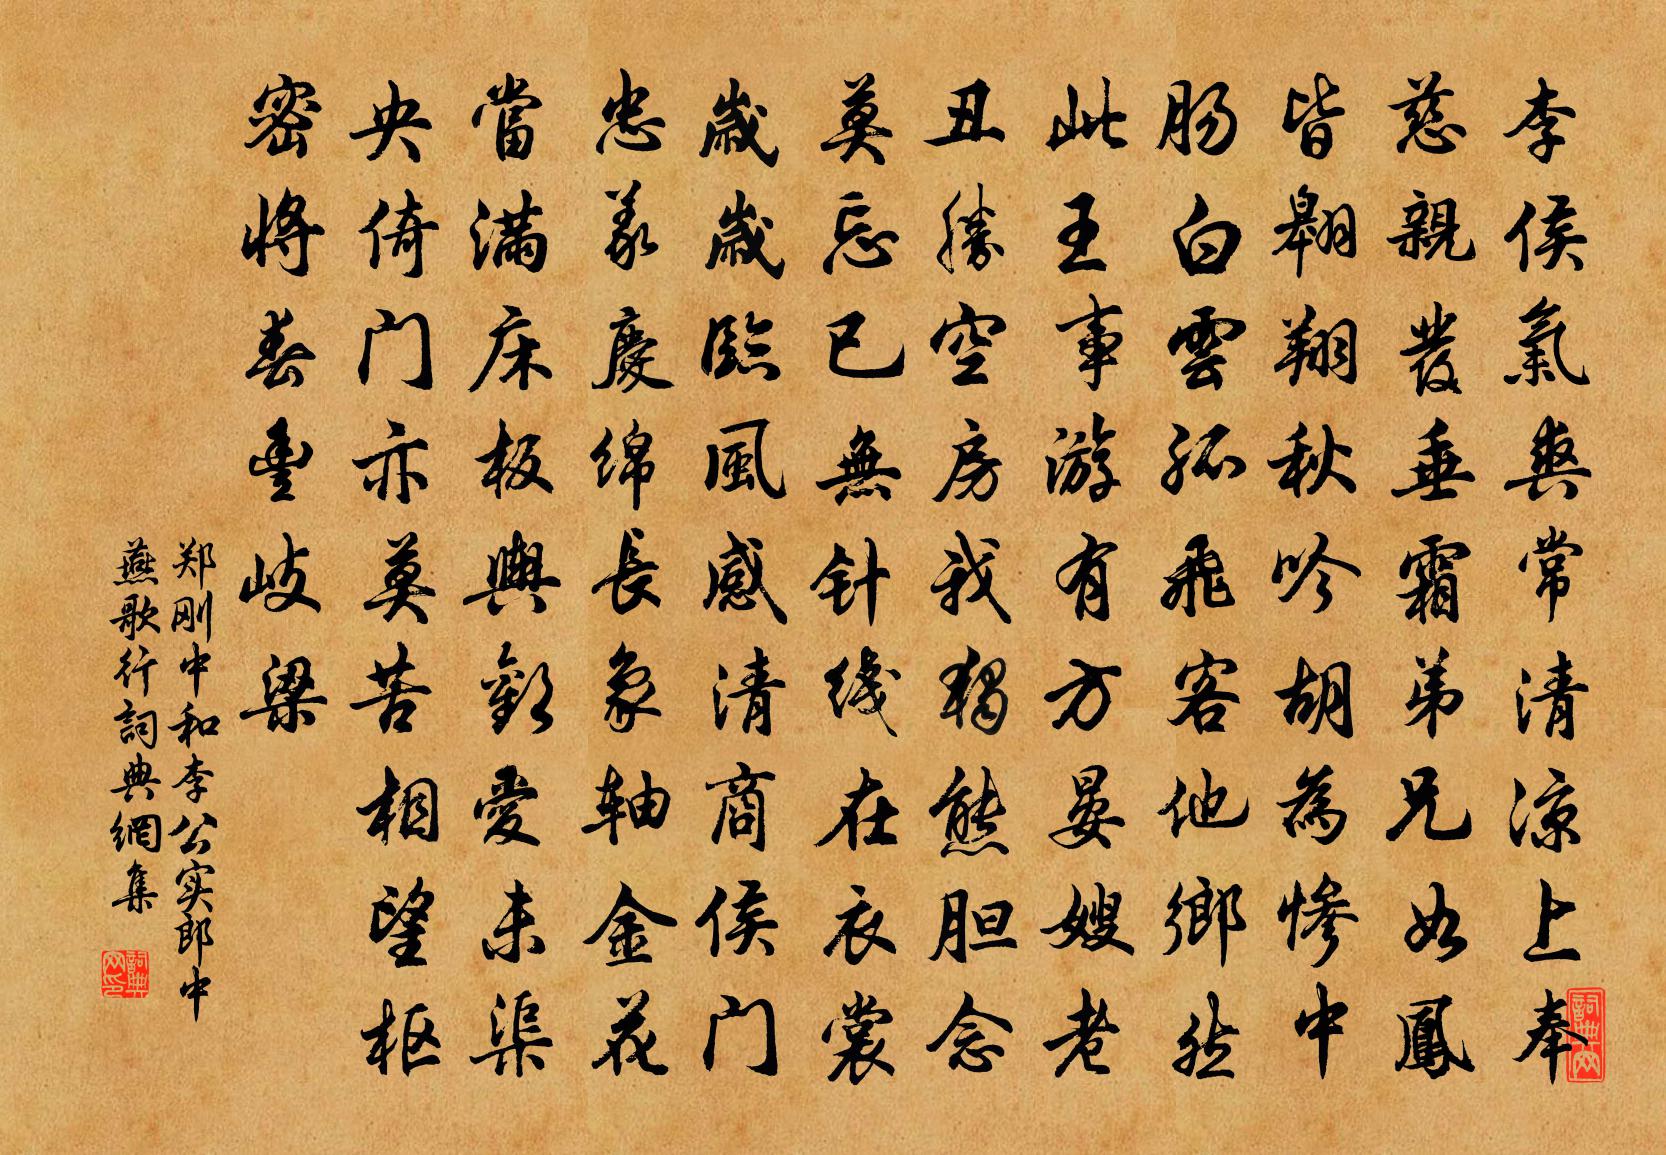 李侯氣爽常清涼上奉
慈親發垂霜弟兄如鳳
皆翱翔秋吟胡為慘中
腸白雲孤飛客他鄉然
此王事游有方晏嫂老
丑勝空房我獨熊胆念
莫忘已無针线在衣裳
歲歲臨風感清商侯门
忠義慶绵長象軸金花
當滿床板輿歡愛未渠
央倚门亦莫苦相望枢
密將春豊岐梁
郑刚中和李公实郎中
燕歌行詞典網集
詞典网
詞典网印